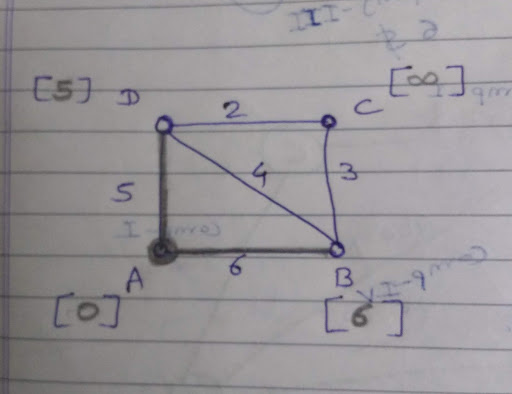 [5] D 2 C [∞]
5 4 3
A 6 B
[0] [6]